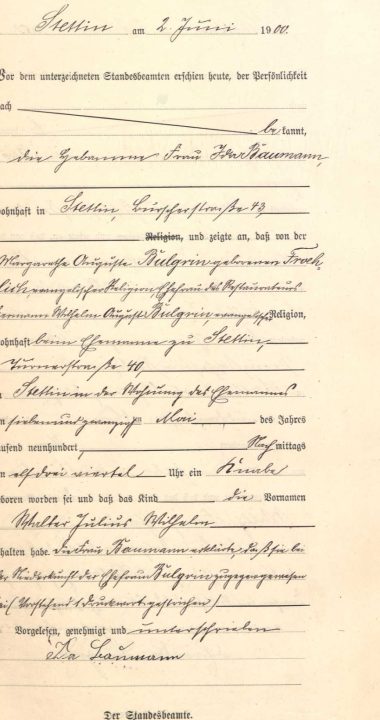 Stettin am 2. Juni 1900.
Vor dem unterzeichneten Standesbeamten erschien heute, der Persönlichkeit
nach
bekannt,
die Hebamme Frau Ida Baumann,
wohnhaft in Stettin, Burscherstraße 43
Religion, und zeigte an, daß von der
Margarethe Auguste Bulgrin geborenen Froeh-
lich evangelischer Religion, Ehefrau des Restaurateurs
Hermann Wilhelm August Bulgrin, evangelisch, Religion,
wohnhaft beim Ehemanne zu Stettin,
Turnerstraße 40,
Stettin in der Wohnung des Ehemannes
siebenundzwanzig Mai des Jahres
tausend neunhundert, Nachmittags
elf drei viertel Uhr ein Knabe
geboren worden sei und daß das Kind die Vornamen
Walter Julius Wilhelm
erhalten habe. Die Frau Baumann erklärte, daß sie bei
der Niederkunft der Ehefrau Bulgrin zugegen gewesen
sei (Vorstehend 1 Druckwort gestrichen)
Vorgelesen, genehmigt und unterschrieben
Ida Baumann
Der Standesbeamte.